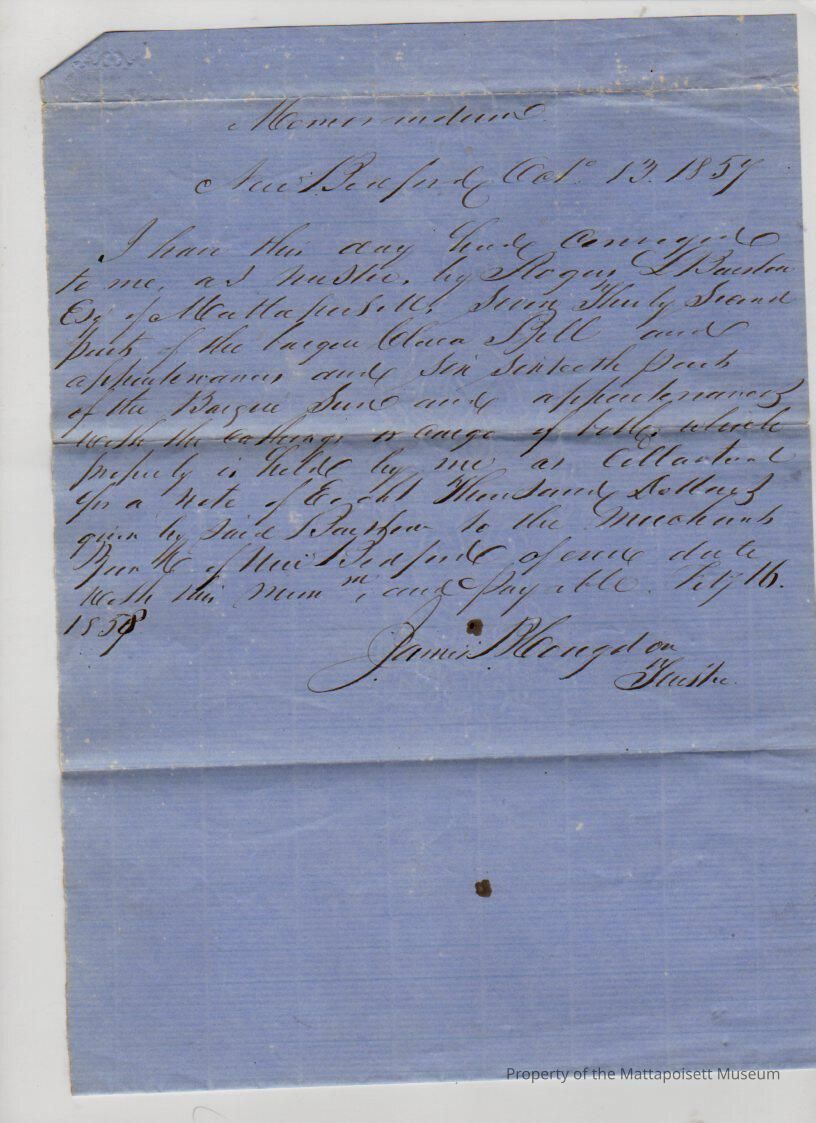 Memorandum
New Bedford Oct. 13. 1857
I have this day had conveyed
to me, as trustee, by Rogers L Barstow
Esq of Mattapoisett, Seven Thirty Second
parts of the barque Clara Bell and
appurtenances and Six Sixteenth parts
of the Barque Sun and appurtenances
with the catchings or cargo of both, which
property is held by me as Collateral
for a note of Eight Thousand Dollars
given by said Barstow to the Mechanics
Bank of New Bedford of even date
with this mem^m, and payable. Feby 16.
1858
James B Congdon
Trustee.
Property of the Mattapoisett Museum